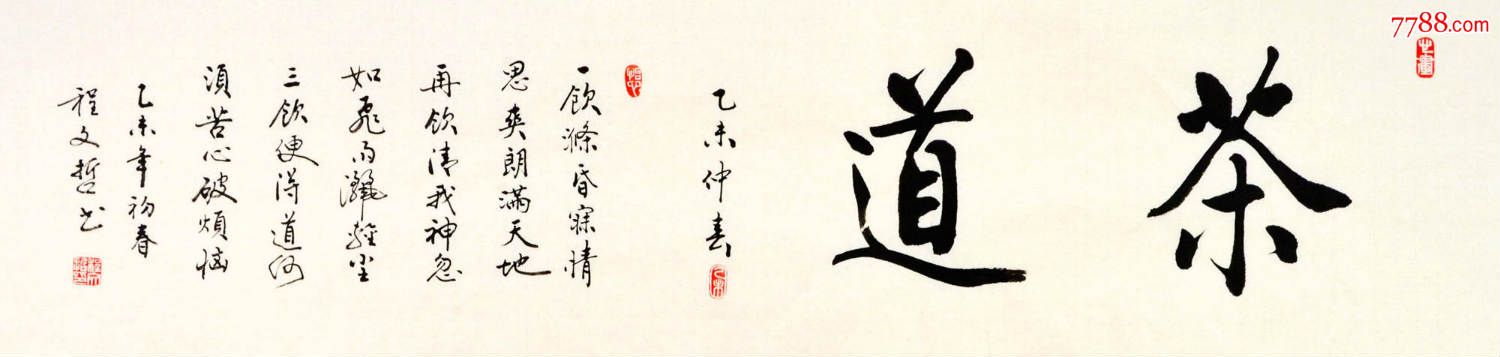 7788.com
茶道
乙未仲春
一飲滌昏寐情
思爽朗滿天地
再飲清我神忽
如飛雨灑輕尘
三飲便得道何
須苦心破煩惱
乙未年初春
程文哲书